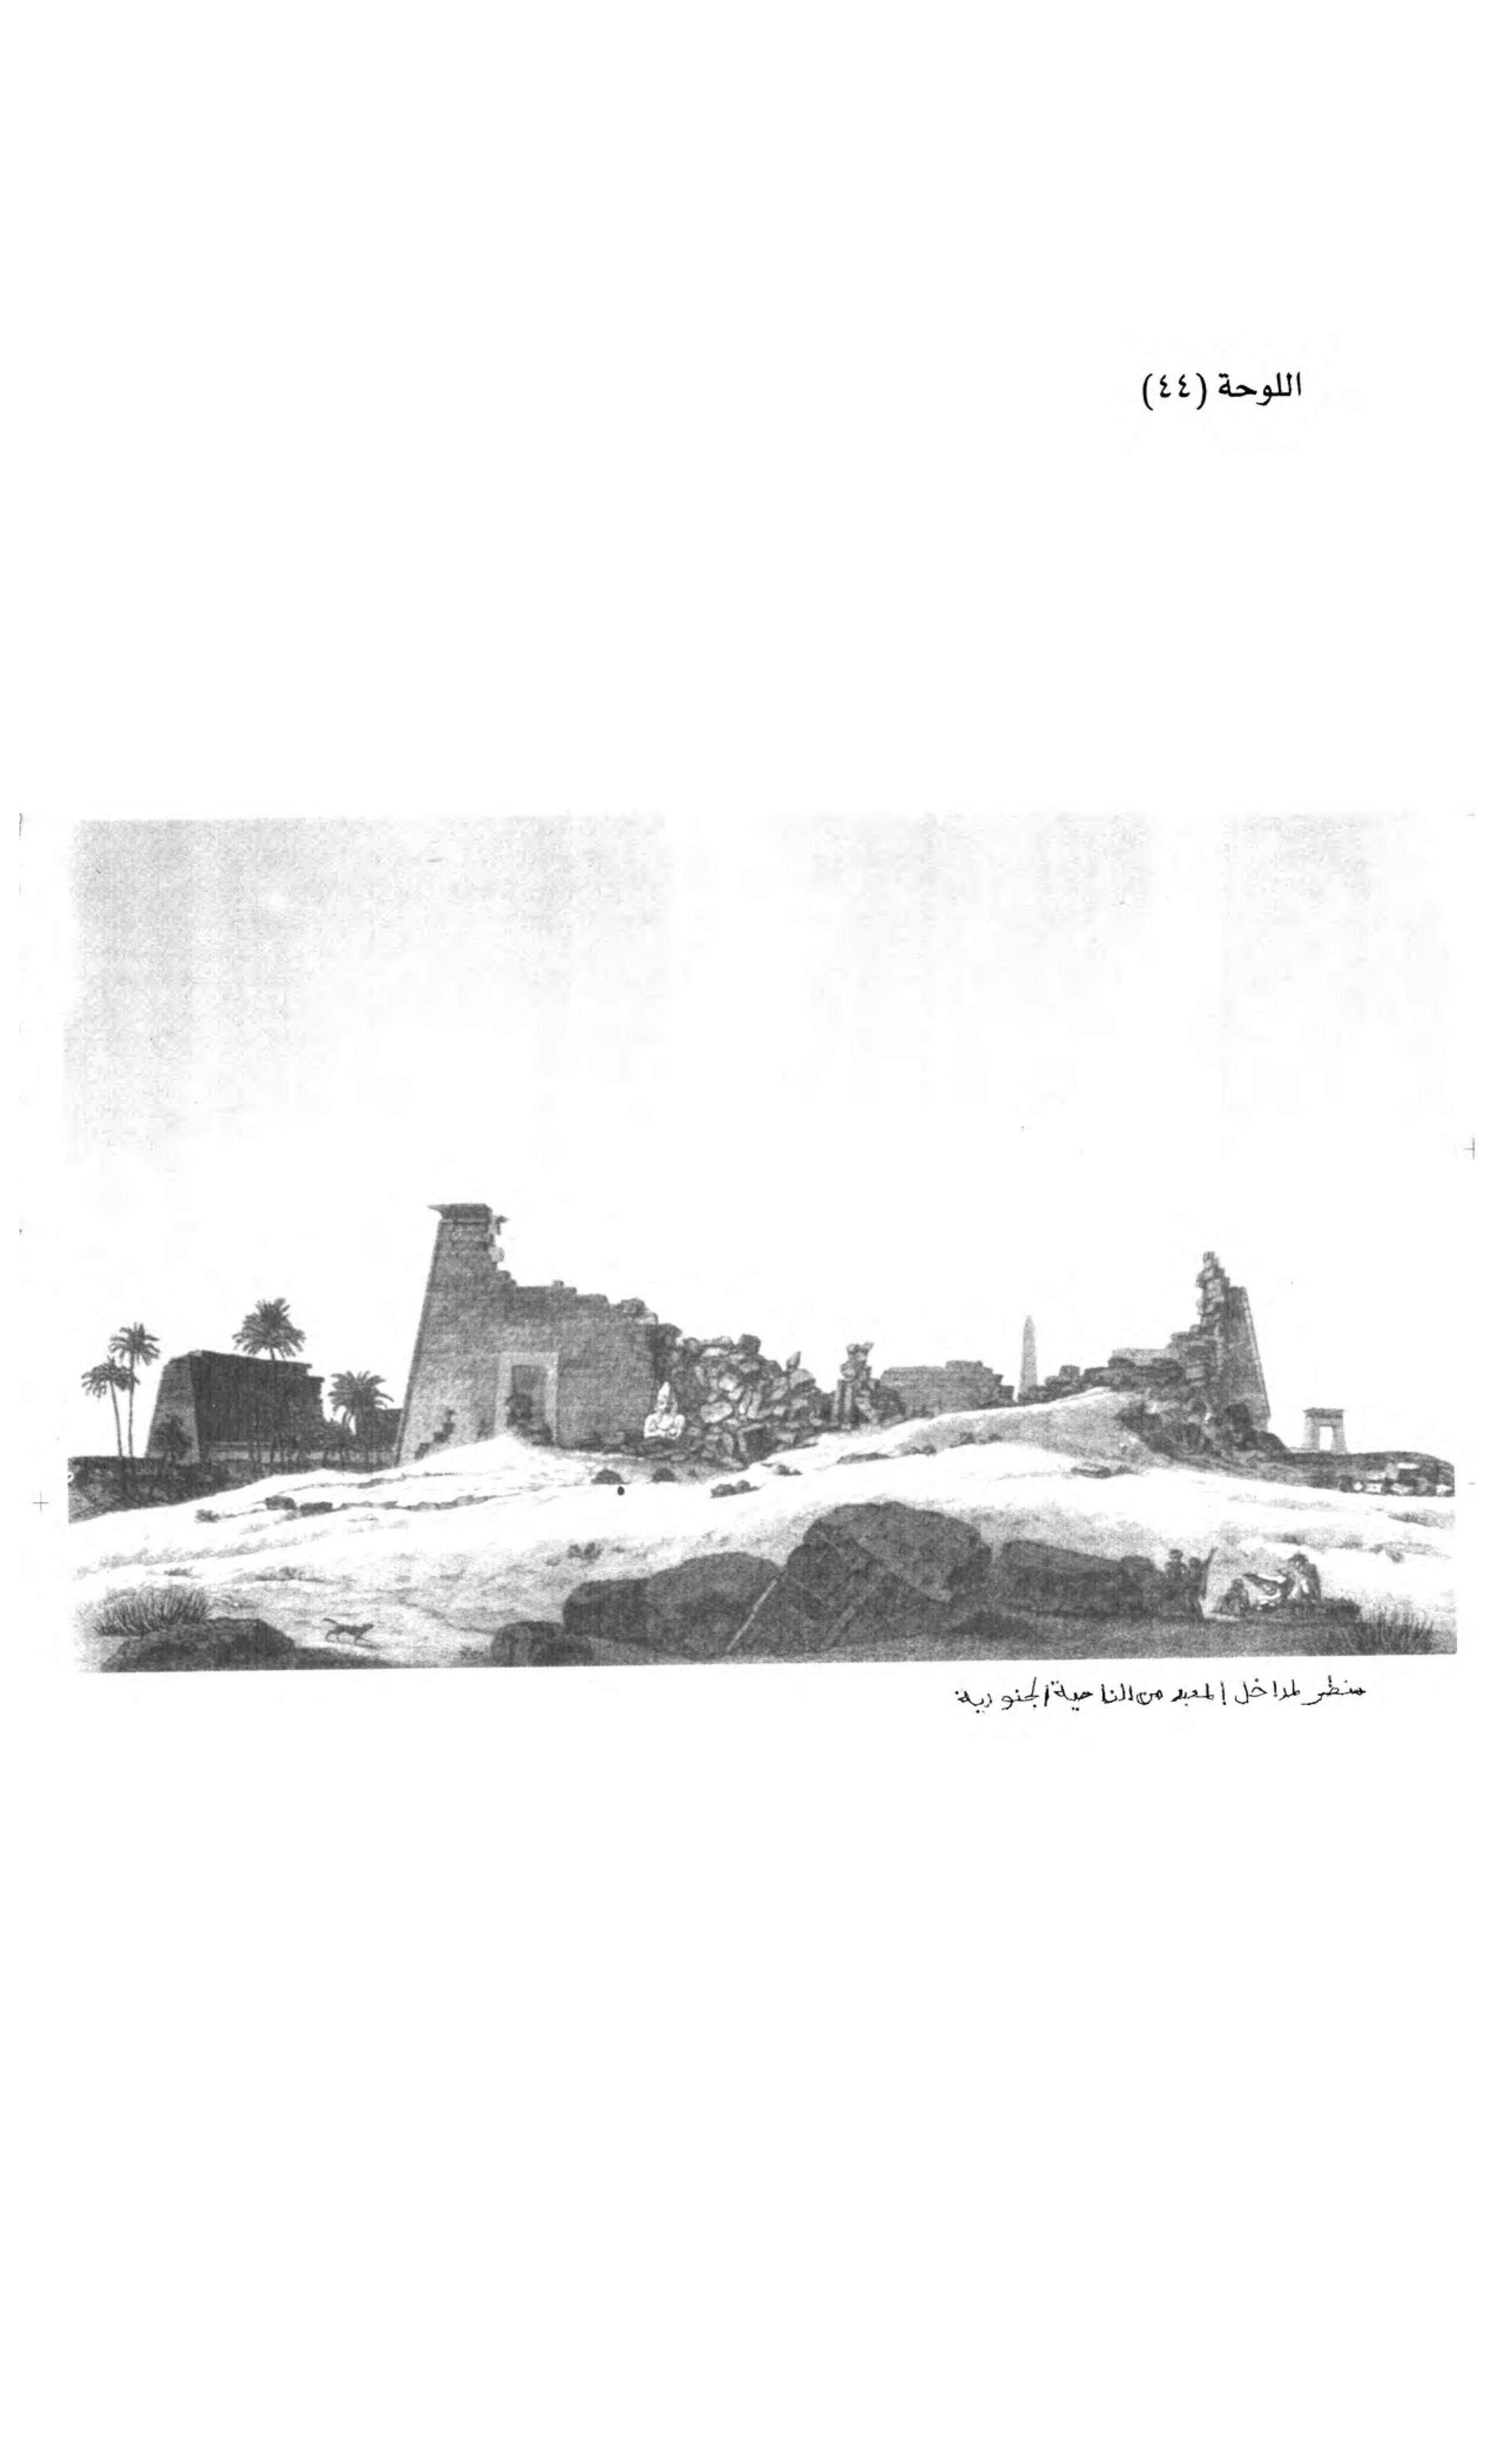 اللوحة (٤٤)
منظر لمداخل المعبد من الناحية الجنوبية